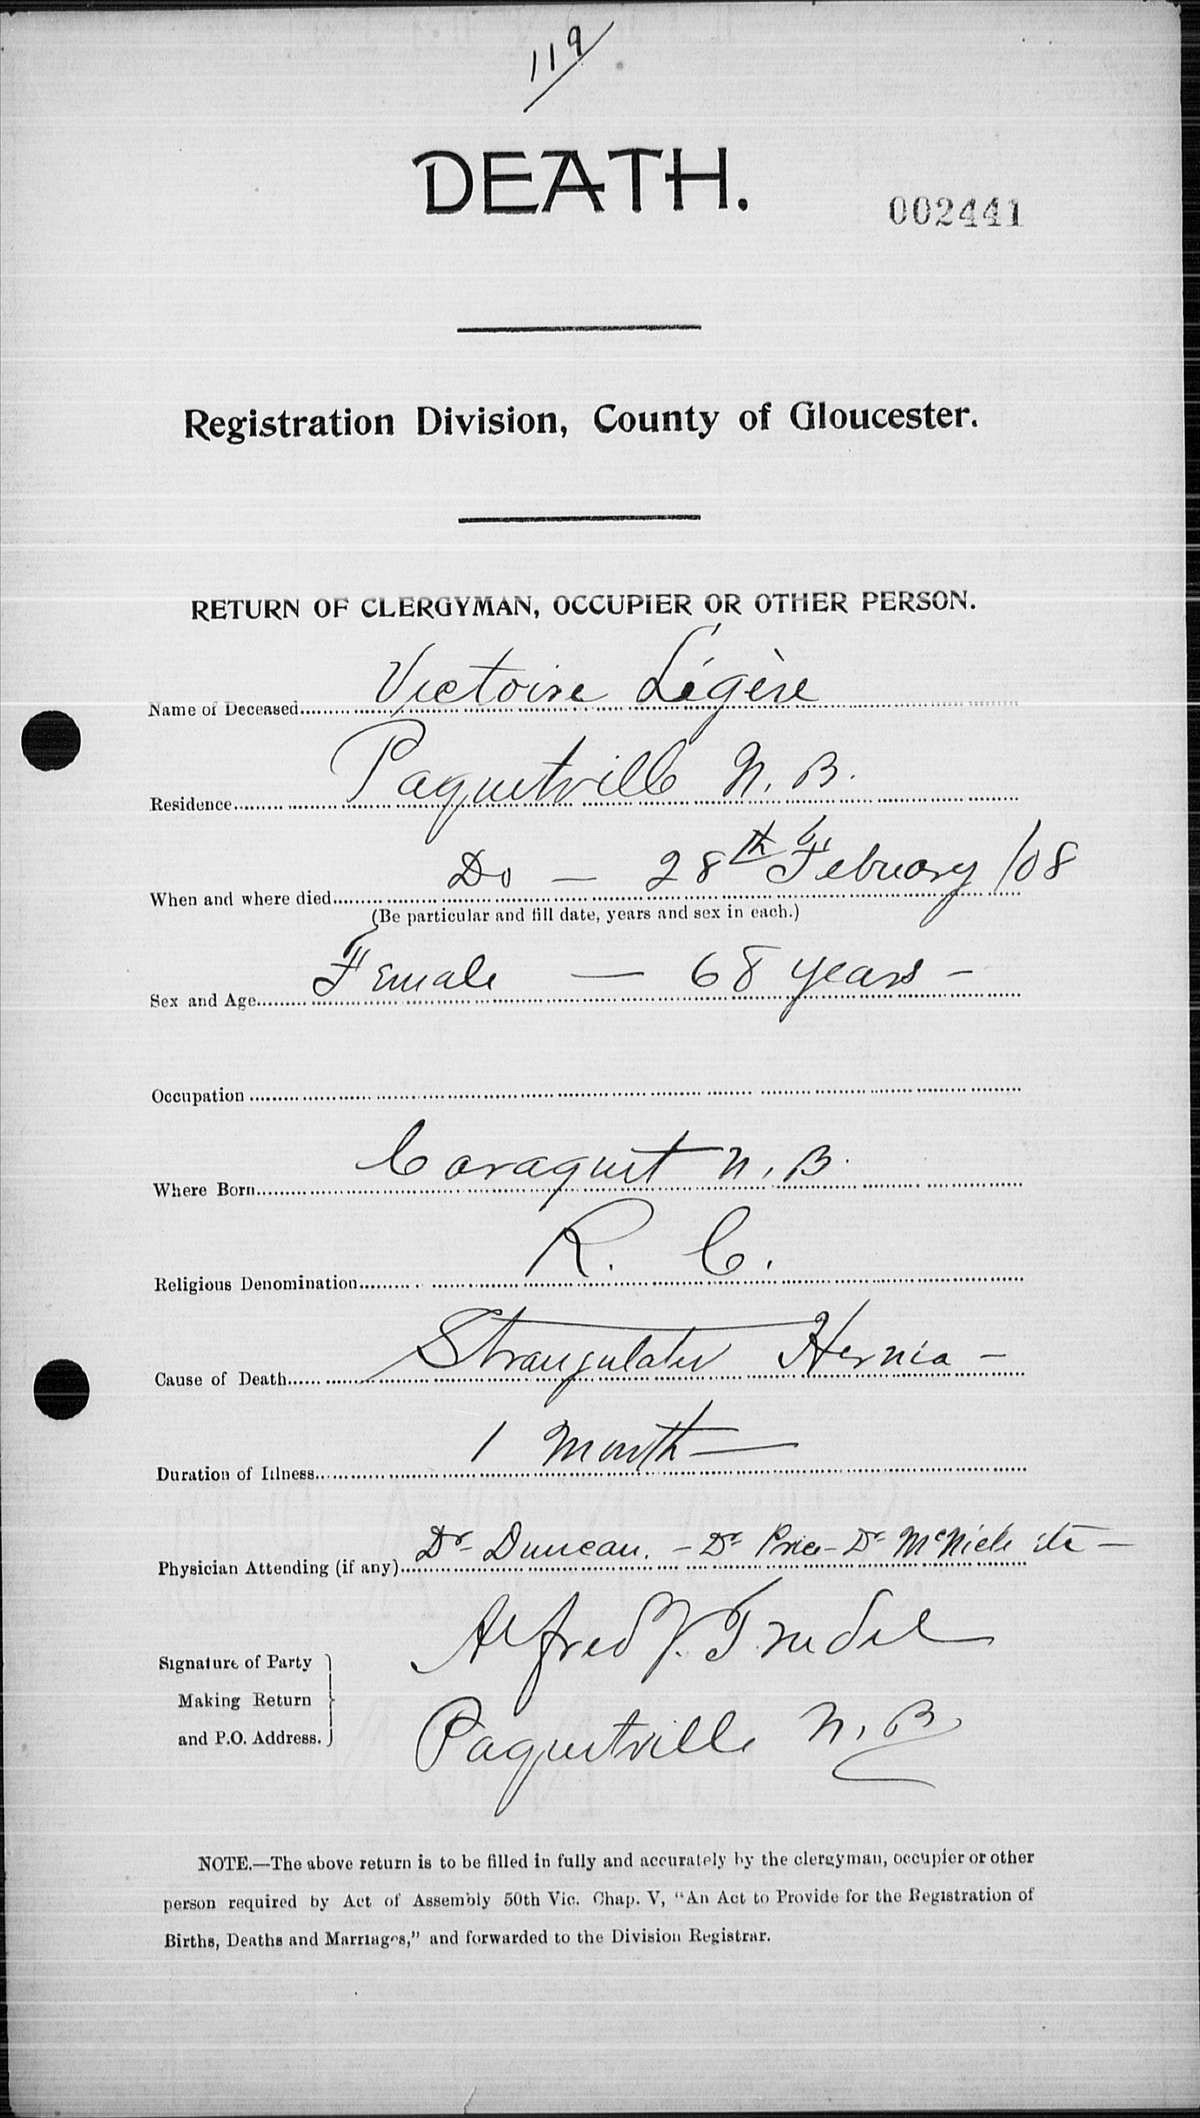 119
DEATH.
002441
Registration Division, County of Gloucester.
RETURN OF CLERGYMAN, OCCUPIER OR OTHER PERSON.
Name of Deceased Victoire Légère
Residence Paquetville N. B.
When and where died Do — 28th Febuary /08
(Be particular and fill date, years and sex in each.)
Sex and Age Female — 68 years —
Occupation
Where Born Caraquet N. B.
Religious Denomination R. C.
Cause of Death Strangulated Hernia —
Duration of Illness 1 Month —
Physician Attending (if any) Dr Duncan. — Dr Price — Dr etc —
Signature of Party Alfred Trudel
Making Return
and P.O. Address. Paquetville N. B.
NOTE.—The above return is to be filled in fully and accurately by the clergyman, occupier or other
person required by Act of Assembly 50th Vic. Chap. V, "An Act to Provide for the Registration of
Births, Deaths and Marriages," and forwarded to the Division Registrar.